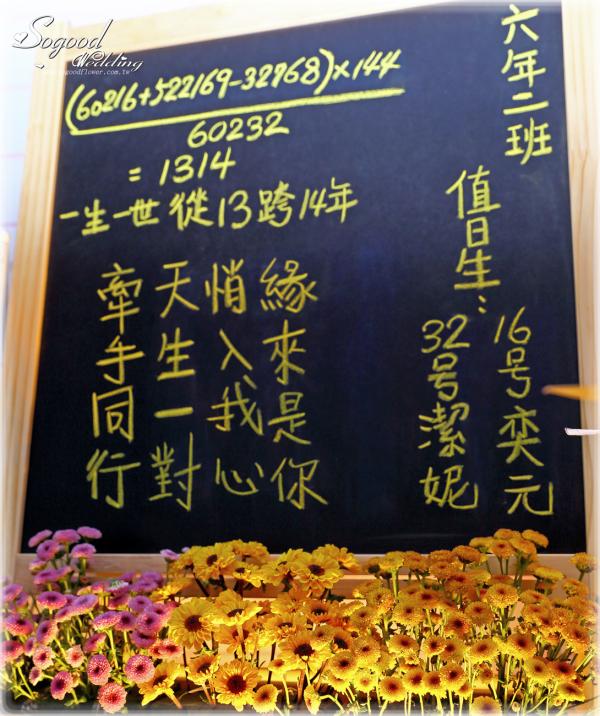 Sogood
Wedding
(60216+522169-32768)×144
60232
=1314
一生一世從13跨14年
六年二班
值日生：
16号奕元
32号潔妮
緣來是你
悄入我心
天生一對
牽手同行